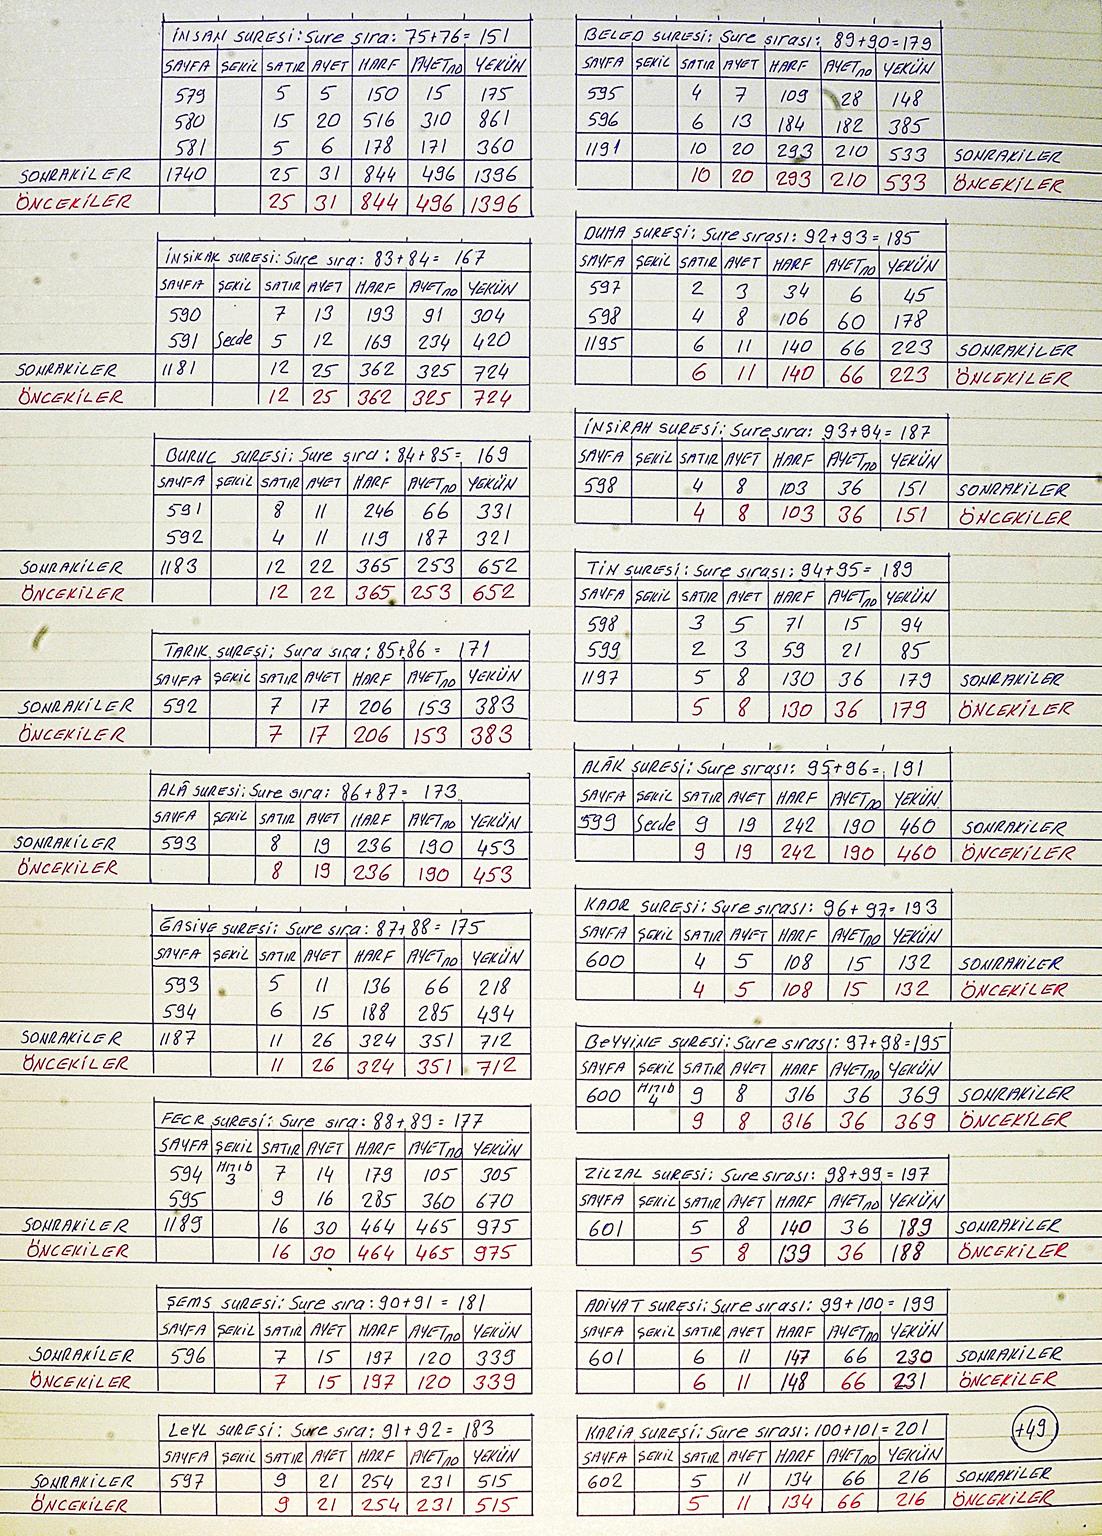 İNSAN SURESİ: Sure sıra: 75+76= 151
SAYFA ŞEKİL SATIR AYET HARF AYET no YEKÜN
579 5 5 150 15 175
580 15 20 516 310 861
581 5 6 178 171 360
SONRAKİLER 1740 25 31 844 496 1396
ÖNCEKİLER 25 31 844 496 1396
İNŞİKAK SURESİ: Sure sıra: 83+84= 167
SAYFA ŞEKİL SATIR AYET HARF AYET no YEKÜN
590 7 13 193 91 304
591 Secde 5 12 169 234 420
SONRAKİLER 1181 12 25 362 325 724
ÖNCEKİLER 12 25 362 325 724
BURUC SURESİ: Sure sıra: 84+85= 169
SAYFA ŞEKİL SATIR AYET HARF AYET no YEKÜN
591 8 11 246 66 331
592 4 11 119 187 321
SONRAKİLER 1183 12 22 365 253 652
ÖNCEKİLER 12 22 365 253 652
TARIK SURESİ: Sura sıra: 85+86 = 171
SAYFA ŞEKİL SATIR AYET HARF AYET no YEKÜN
SONRAKİLER 592 7 17 206 153 383
ÖNCEKİLER 7 17 206 153 383
ALÂ SURESİ: Sure sıra: 86+87= 173
SAYFA ŞEKİL SATIR AYET HARF AYET no YEKÜN
SONRAKİLER 593 8 19 236 190 453
ÖNCEKİLER 8 19 236 190 453
ĞAŞİYE SURESİ: Sure sıra: 87+88= 175
SAYFA ŞEKİL SATIR AYET HARF AYET no YEKÜN
593 5 11 136 66 218
594 6 15 188 285 494
SONRAKİLER 1187 11 26 324 351 712
ÖNCEKİLER 11 26 324 351 712
FECR SURESİ: Sure sıra: 88+89= 177
SAYFA ŞEKİL SATIR AYET HARF AYET no YEKÜN
594 Hızıb 3 7 14 179 105 305
595 9 16 285 360 670
SONRAKİLER 1189 16 30 464 465 975
ÖNCEKİLER 16 30 464 465 975
ŞEMS SURESİ: Sure sıra: 90+91 = 181
SAYFA ŞEKİL SATIR AYET HARF AYET no YEKÜN
SONRAKİLER 596 7 15 197 120 339
ÖNCEKİLER 7 15 197 120 339
LEYL SURESİ: Sure sıra: 91+92= 183
SAYFA ŞEKİL SATIR AYET HARF AYET no YEKÜN
SONRAKİLER 597 9 21 254 231 515
ÖNCEKİLER 9 21 254 231 515
BELED SURESİ: Sure sırası: 89+90=179
SAYFA ŞEKİL SATIR AYET HARF AYET no YEKÜN
595 4 7 109 28 148
596 6 13 184 182 385
1191 10 20 293 210 533 SONRAKİLER
10 20 293 210 533 ÖNCEKİLER
DUHA SURESİ: Sure sırası: 92+93=185
SAYFA ŞEKİL SATIR AYET HARF AYET no YEKÜN
597 2 3 34 6 45
598 4 8 106 60 178
1195 6 11 140 66 223 SONRAKİLER
6 11 140 66 223 ÖNCEKİLER
İNŞİRAH SURESİ: Sure sıra: 93+94=187
SAYFA ŞEKİL SATIR AYET HARF AYET no YEKÜN
598 4 8 103 36 151 SONRAKİLER
4 8 103 36 151 ÖNCEKİLER
TİN SURESİ: Sure sırası: 94+95= 189
SAYFA ŞEKİL SATIR AYET HARF AYET no YEKÜN
598 3 5 71 15 94
599 2 3 59 21 85
1197 5 8 130 36 179 SONRAKİLER
5 8 130 36 179 ÖNCEKİLER
ALÂK SURESİ: Sure sırası: 95+96= 191
SAYFA ŞEKİL SATIR AYET HARF AYET no YEKÜN
599 Secde 9 19 242 190 460 SONRAKİLER
9 19 242 190 460 ÖNCEKİLER
KADR SURESİ: Sure sırası: 96+97=193
SAYFA ŞEKİL SATIR AYET HARF AYET no YEKÜN
600 4 5 108 15 132 SONRAKİLER
4 5 108 15 132 ÖNCEKİLER
BEYYİNE SURESİ: Sure sırası: 97+98=195
SAYFA ŞEKİL SATIR AYET HARF AYET no YEKÜN
600 Hızıb 4 9 8 316 36 369 SONRAKİLER
9 8 316 36 369 ÖNCEKİLER
ZİLZAL SURESİ: Sure sırası: 98+99=197
SAYFA ŞEKİL SATIR AYET HARF AYET no YEKÜN
601 5 8 140 36 189 SONRAKİLER
5 8 139 36 188 ÖNCEKİLER
ADİYAT SURESİ: Sure sırası: 99+100=199
SAYFA ŞEKİL SATIR AYET HARF AYET no YEKÜN
601 6 11 147 66 230 SONRAKİLER
6 11 148 66 231 ÖNCEKİLER
+49
KARİA SURESİ: Sure sırası: 100+101=201
SAYFA ŞEKİL SATIR AYET HARF AYET no YEKÜN
602 5 11 134 66 216 SONRAKİLER
5 11 134 66 216 ÖNCEKİLER